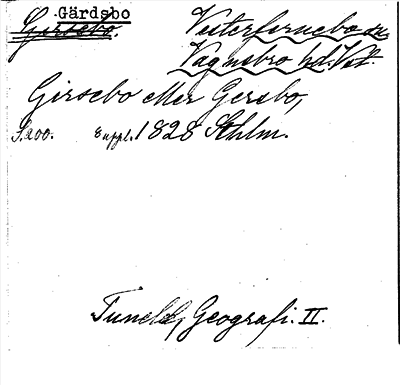 Gärdsbo
Girsebo. Vesterfernebo sn
Vagnsbro hd. Vst.
Girsebo eller Gersbo,
S. 200. Suppl. 1828 Sthlm.
Tuneld, Geografi. II.